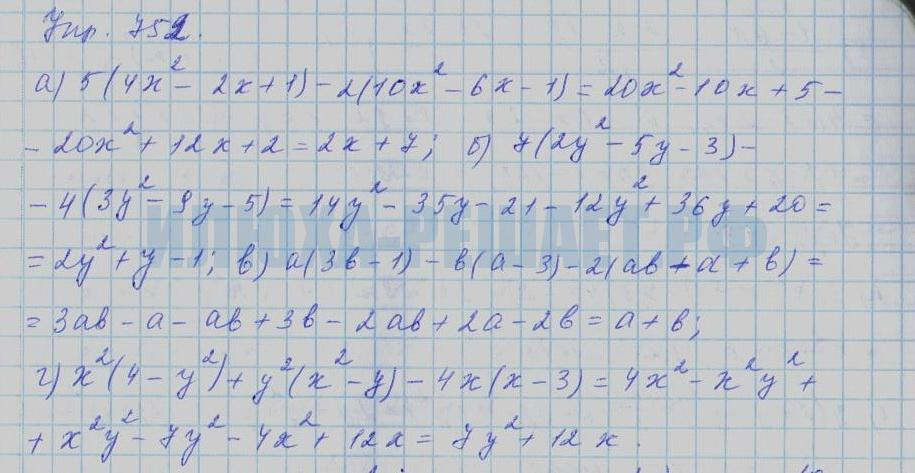 Упр. 752.
а) 5(4x² - 2x+1) - 2(10x² - 6x - 1) = 20x² - 10x + 5 -
- 20x² + 12x + 2 = 2x + 7; б) 7(2y² - 5y - 3) -
- 4(3y² - 9y - 5) = 14y² - 35y - 21 - 12y² + 36y + 20 =
= 2y² + y - 1; в) a(3b - 1) - b(a - 3) - 2(ab - a + b) =
= 3ab - a - ab + 3b - 2ab + 2a - 2b = a + b;
г) x²(4 - y²) + y²(x² - y) - 4x(x - 3) = 4x² - x²y² +
+ x²y² - 7y² - 4x² + 12x = 7y² + 12x.
ИЛЮХА-РЕШАЕТ.РФ